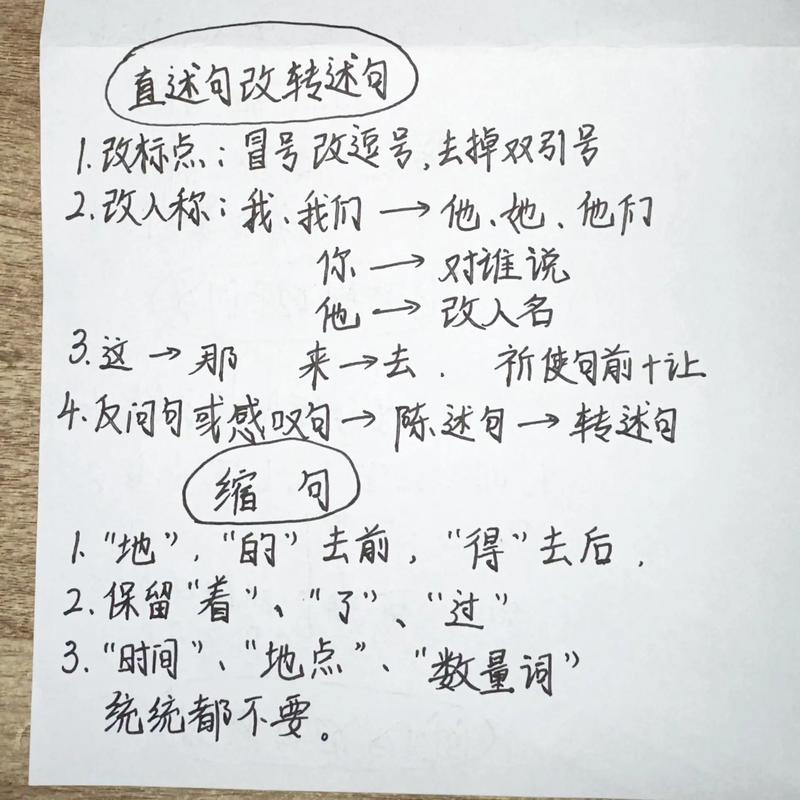 直述句改转述句
1.改标点：冒号改逗号,去掉双引号
2.改人称：我、我们→他、她、他们
你→对谁说
他→改人名
3.这→那 来→去. 祈使句前+让
4.反问句或感叹句→陈述句→转述句
缩句
1.“地”、“的”去前，“得”去后，
2.保留“着”、“了”、“过”
3.“时间”、“地点”、“数量词”
统统都不要。